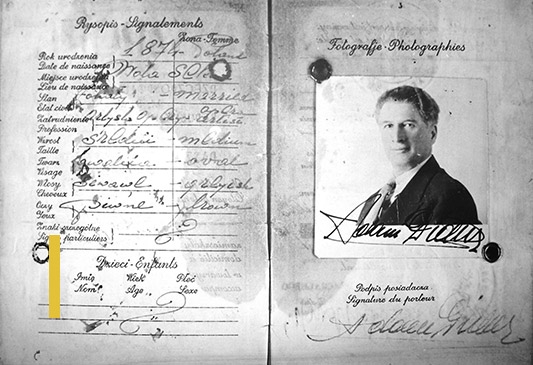 Rysopis - Signalements
Żona - Femme
Rok urodzenia 1874
Date de naissance
Miejsce urodzenia Wola
Lieu de naissance
Stan married
Etat civil
Zatrudnienie artysta opery opera
Profession artist
Wzrost średni - medium
Taille
Twarz - oval
Visage
Włosy siwawe - greyish
Cheveux
Oczy piwne brown
Yeux
Znaki szczególne
Signes particuliers
Dzieci - Enfants
Imię Wiek Płeć
Nom Age Sexe
Fotografje - Photographies
Adam
Podpis posiadacza
Signature du porteur
Adam